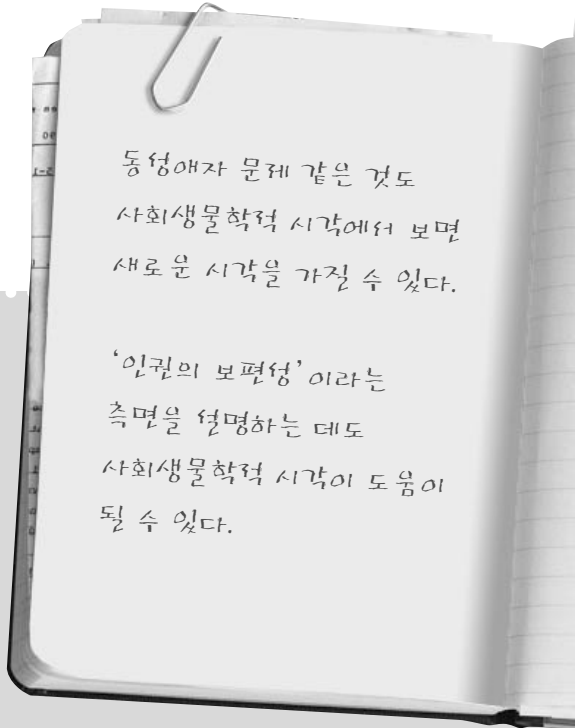 동성애자 문제 같은 것도
사회생물학적 시각에서 보면
새로운 시각을 가질 수 있다.
‘인권의 보편성’이라는
측면을 설명하는 데도
사회생물학적 시각이 도움이
될 수 있다.